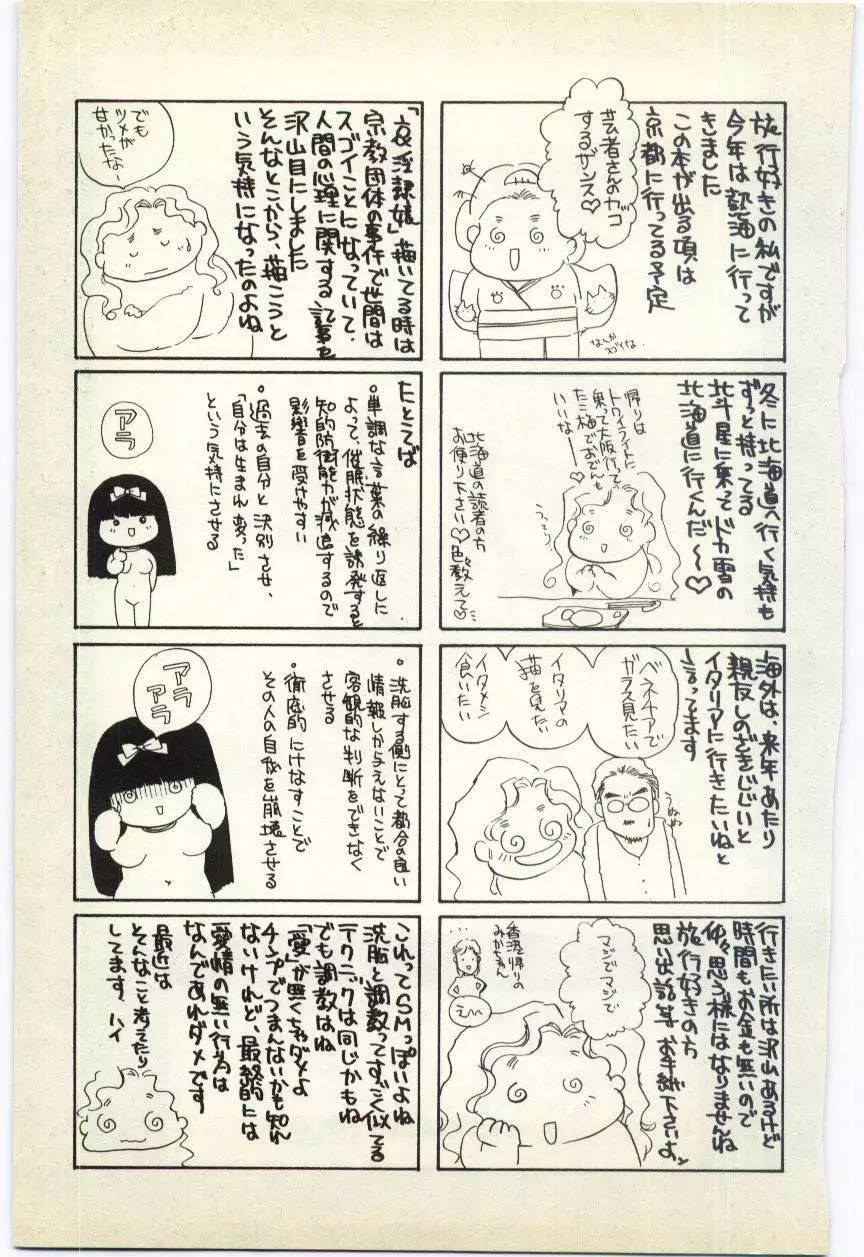 旅行好きの私ですが
今年は熱海に行って
きました
この本が出る頃は
京都に行ってる予定
芸者さんのカッコ
するザンス♡
なんかコワイな
冬に北海道へ行く気持も
ずっと持ってる
北斗星に乗ってドカ雪の
北海道に行くんだ〜♡
帰りは
トワイライトに
乗って大阪行って
たこ梅でおでんも
いいな――♡
北海道の読者の方
お便り下さい♡色々教えて♡
海外は、来年あたり
親友しのざきじじいと
イタリアに行きたいねと
言ってます
ベネチアで
ガラス見たい
イタリアの
猫を見たい
イタメシ
食いたい
うぬぬ
行きたい所は沢山あるけど
時間もお金も無いので
仲々思う様にはなりませんね
旅行好きの方
思い出話等お手紙下さいよ
マジでマジで
香港帰りの
みかちゃん
えへへ
「哀淫隷嬢」描いてる時は
宗教団体の事件で世間は
スゴイことになっていて、
人間の心理に関する記事を
沢山目にしました
そんなとこから、描こうと
いう気持になったのよね
でも
ツメが
甘かったな〜
たとえば
・単調な言葉の繰り返しに
よって、催眠状態を誘発すると
知的防衛能力が減退するので
影響を受けやすい
・過去の自分と決別させ、
「自分は生まれ変った」
という気持にさせる
アラ
・洗脳する側にとって都合の良い
情報しか与えないことで
客観的な判断をできなく
させる
・徹底的にけなすことで
その人の自我を崩壊させる
アラ
アラ
これってSMっぽいよね
洗脳と調教ってすごく似てる
テクニックは同じかもね
でも調教はね
「愛」が無くちゃダメよ
チンプでつまんないかも知れ
ないけれど、最終的には
愛情の無い行為は
なんであれダメです
最近は
そんなこと考えたり
してます、ハイ